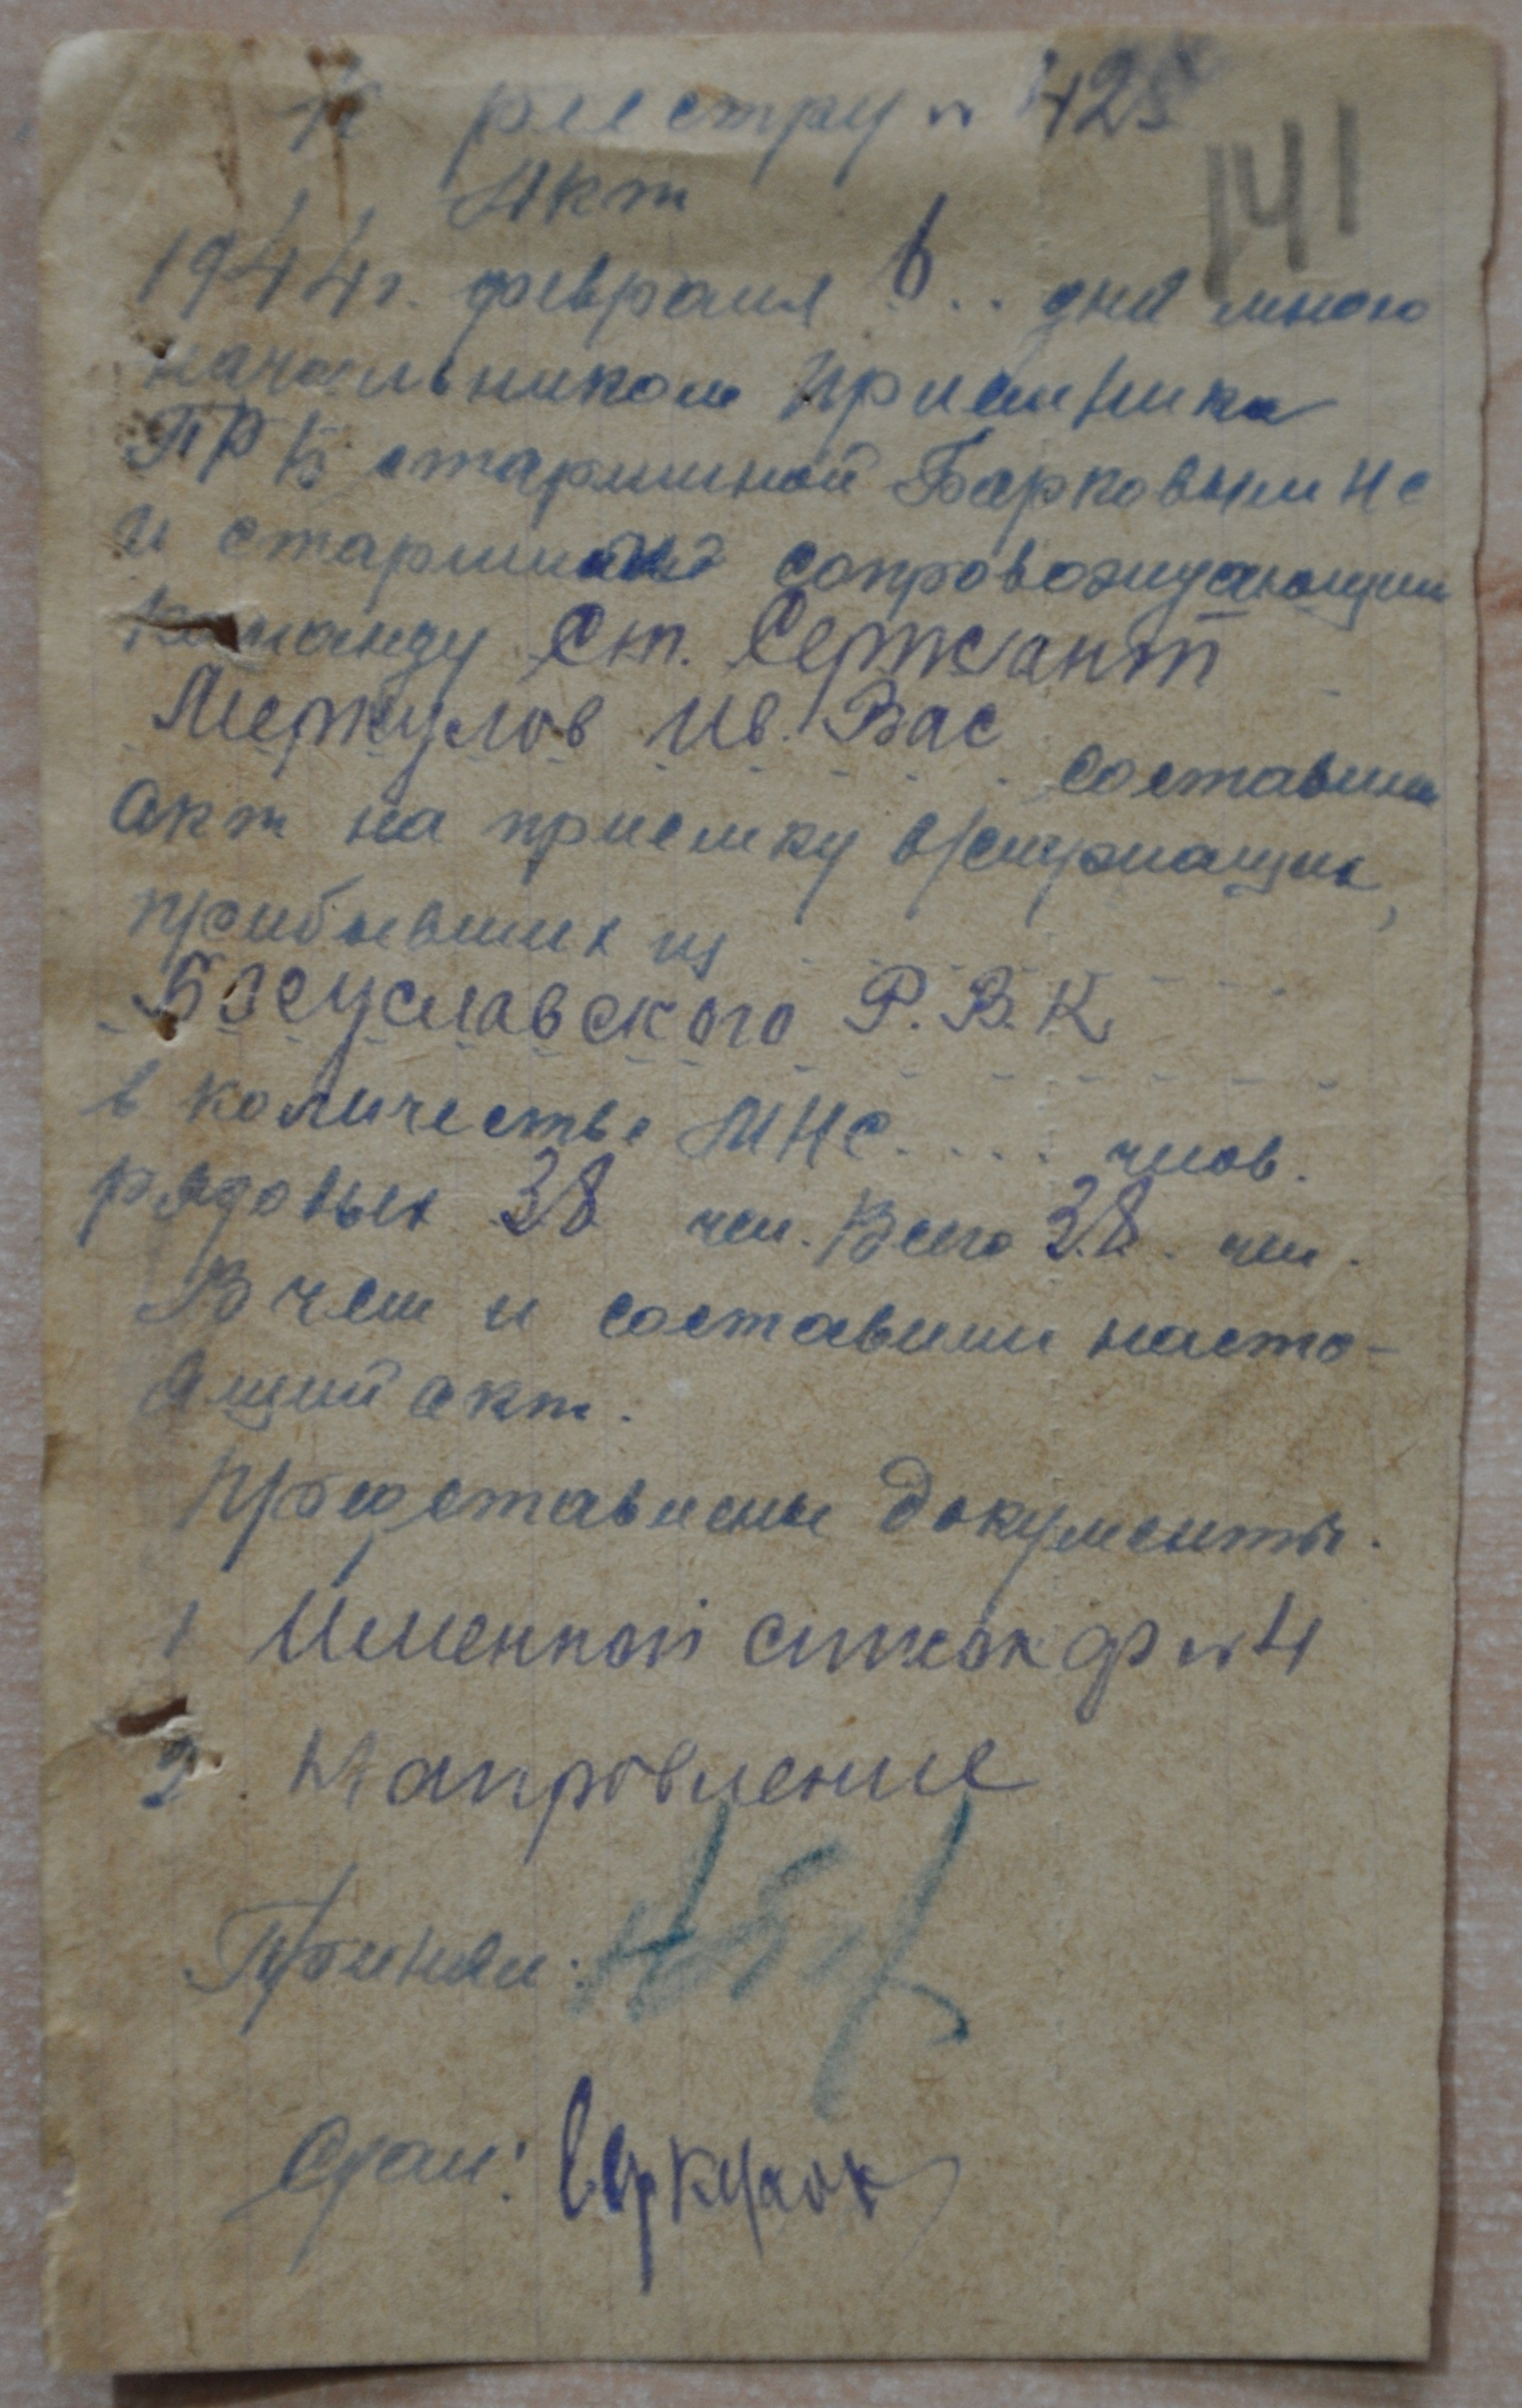 К реестру № 425
141
Акт
1944г. февраля 6.. дня мною
начальником приемника
ПРБ старшиной Барковым НС
и старшиной сопровождающим
команду Ст. Сержант
Меркулов Ив. Вас
составили
акт на приемку в/служащих,
прибывших из
Богуславского Р.В.К
в количестве МНС.... челов.
рядовых 38 чел. Всего 38. чел.
В чем и составили насто-
ящий акт.
Представлены документы.
1 Именной список ф №4
2. Направление
Принял:
Сдал: Меркулов